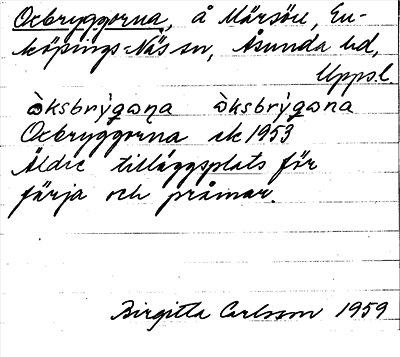 Ocbryggorna, å Mårsön, En-
köpings-Näs sn, Åsunda hd,
Uppsl.
òksbry̆gɷn̥a òksbry̆gɷna
Ocbryggorna ek 1953
Äldre tilläggsplats för
färja och pråmar.
Birgitta Carlsson 1959